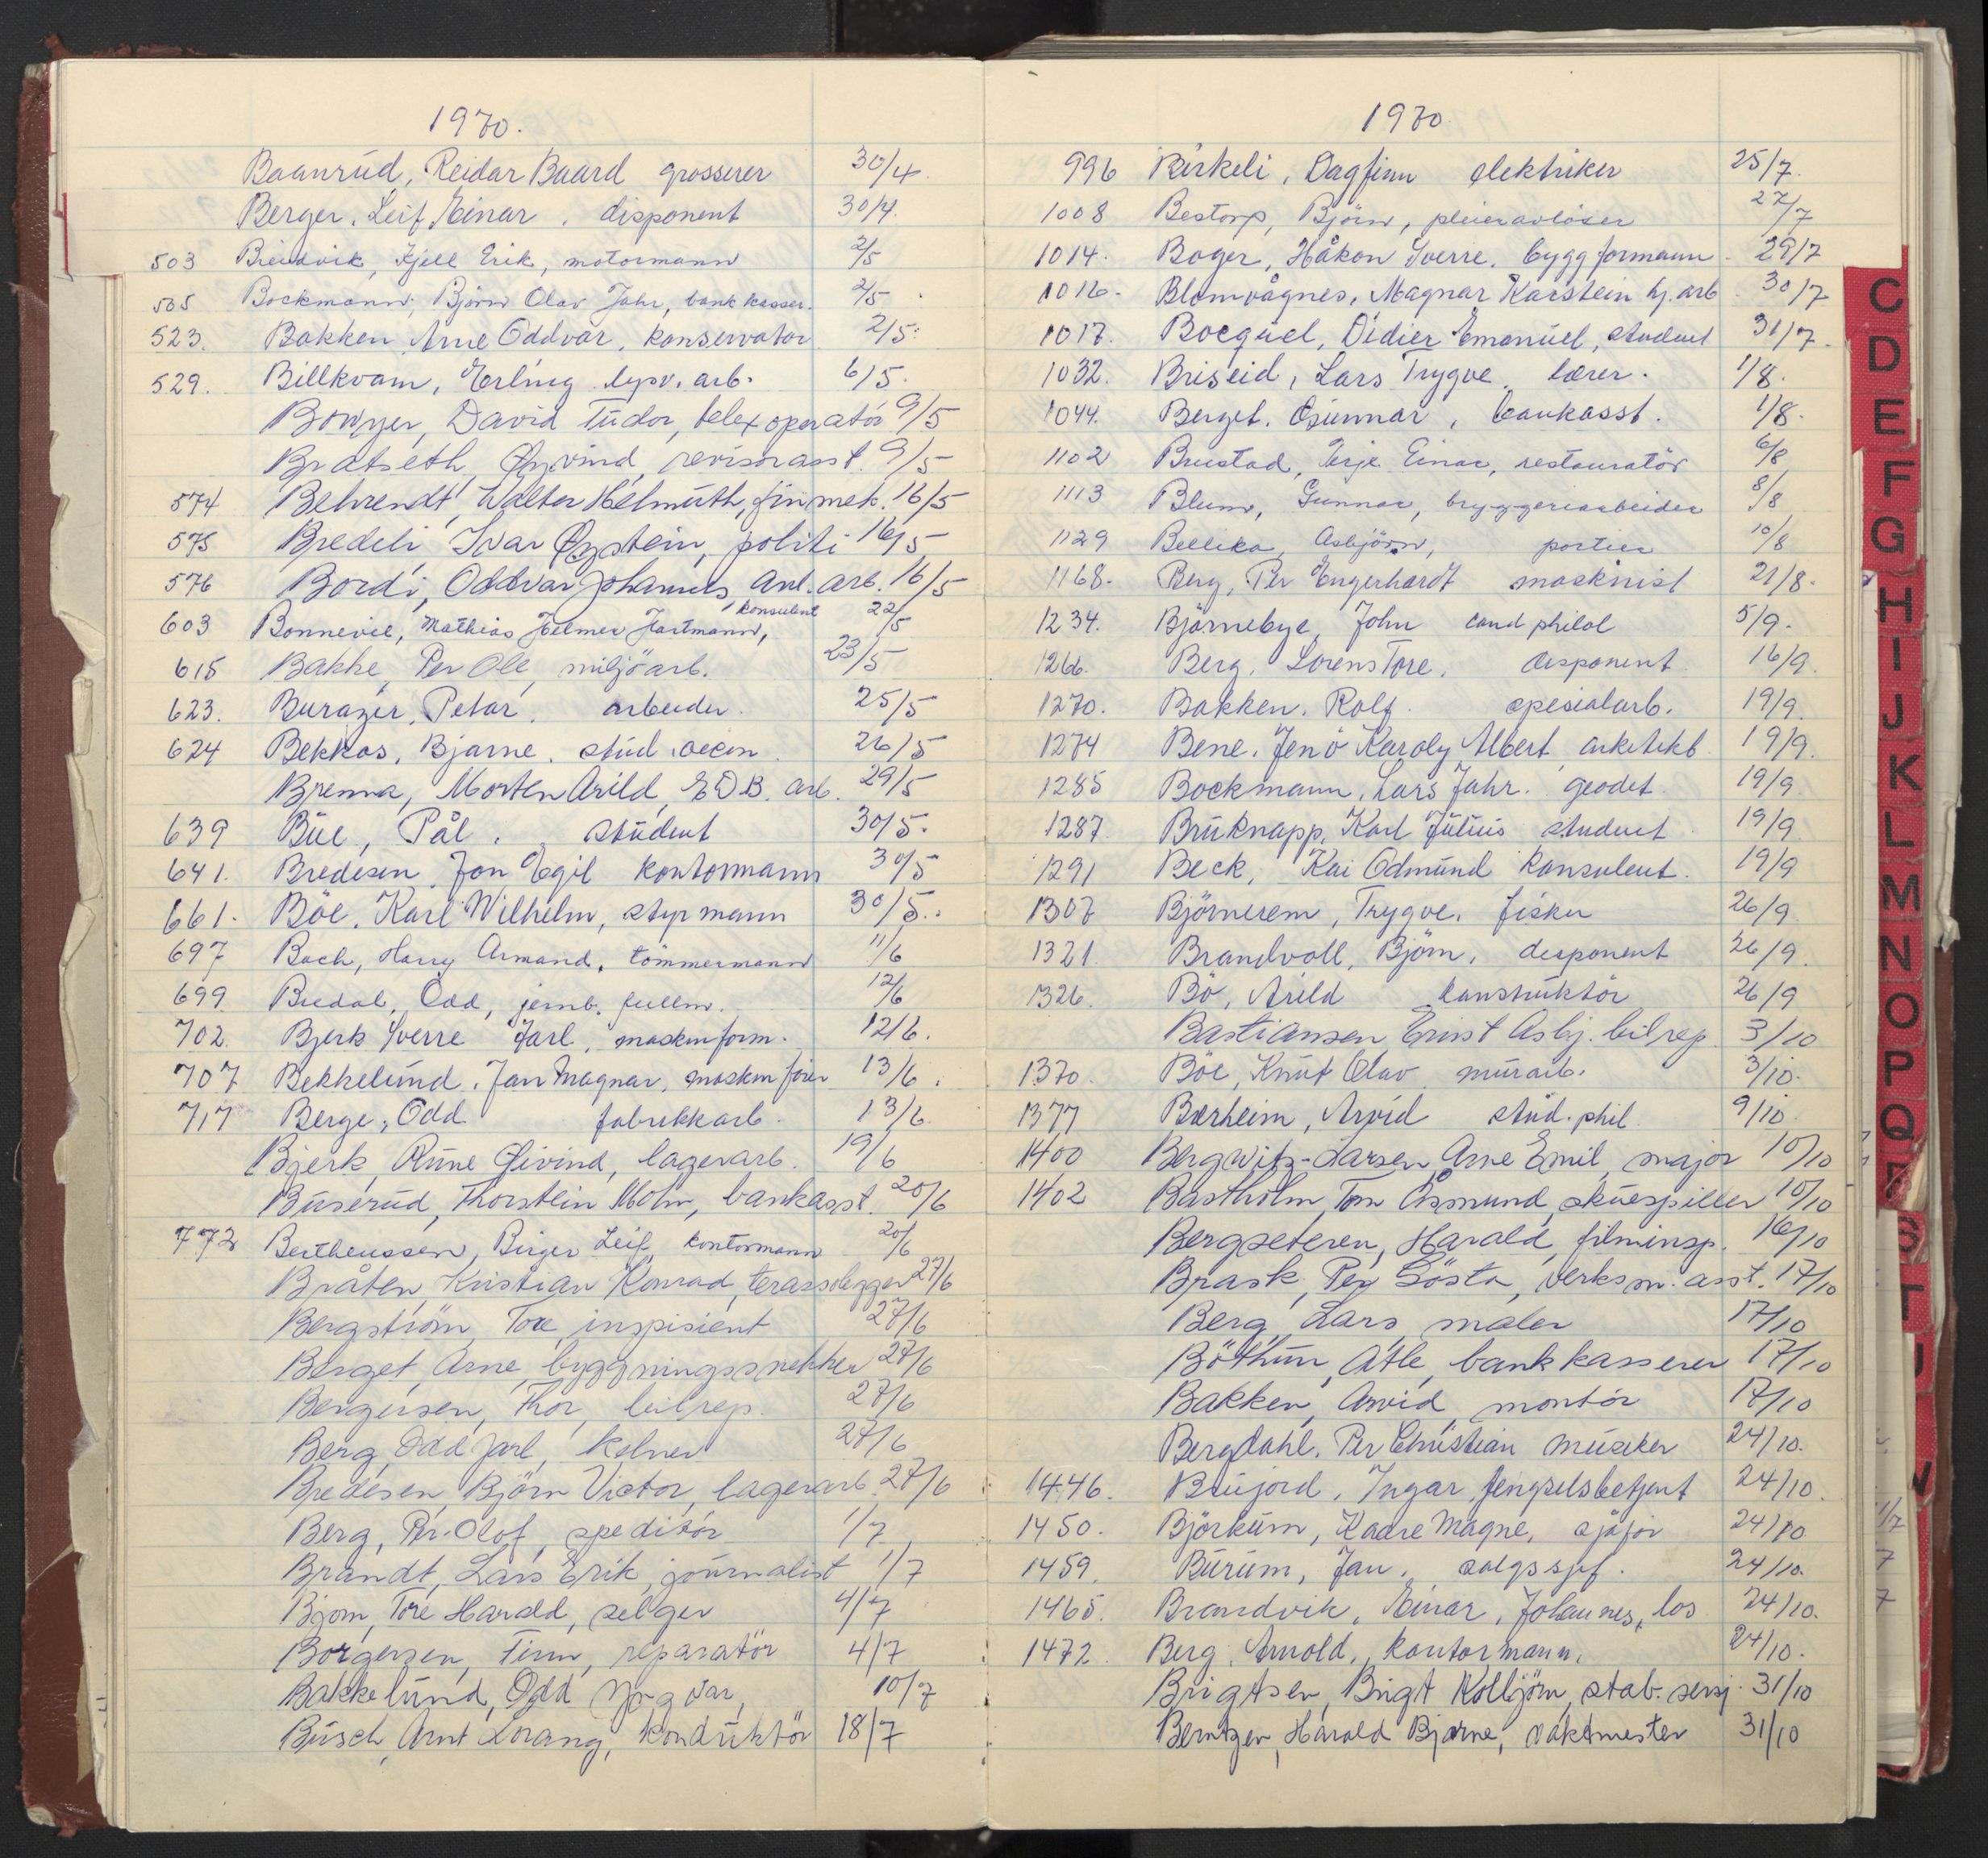 1970.
Baanrud, Reidar Baard grosserer 30/4.
Berger, Leif Einar, disponent 30/4.
503 Breidvik, Kjell Erik, motormann 2/5
505 Bockmann, Björn Olav Jahr, bank kasser. 2/5
523. Bakken, Arne Oddvar, konservator 2/5.
529. Billkvam, Erling lysv. arb. 6/5.
Bowyer, David Tudor, telexoperatör 9/5
Bratseth, Øyvind, revisorasst. 9/5
574 Behrendt, Walter Helmuth, finmek. 16/5
575 Bredeli, Ivar Øystein, politi 16/5
576 Bordi, Oddvar Johannes, anl. arb. 16/5
603 Bonnevie, Mathias Helmer Hartmann, konsulent 22/5
615 Bakke, Per Ole, miljöarb. 23/5
623. Burazer, Petar, arbeider. 25/5
624 Bekkos, Bjarne, stud. oecon. 26/5
Brenna, Morten Arild, E.D.B. arb. 29/5
639 Bue, Pål, student 30/5.
641. Bredesen, Jon Egil kontormann 30/5
661. Böe, Karl Wilhelm, styrmann 30/5.
697 Bach, Harry Armand, tömmermann 11/6
699. Bredal, Odd, jernb. fullm. 12/6
702. Bjerk Sverre Jarl, maskinform. 12/6.
707 Bekkelund, Jan Magnar, maskinförer 13/6.
717 Berge, Odd fabrikkarb. 13/6.
Bjerk, Rune Øivind, lagerarb. 19/6
Buserud, Thorstein Mohn, bankasst. 20/6
772 Bertheussen, Birger Leif, kontormann 20/6
Bråten, Kristian Konrad, terassolegger 27/6
Bergström, Tore, inspisient 27/6
Berget, Arne, byggningssnekker 27/6
Bergersen, Thor, bilrep. 27/6
Berg, Odd Jarl, kelner 27/6
Bredesen, Björn Victor, lagerarb. 27/6
Berg, Per-Olof, speditör 1/7
Brandt, Lars Erik, journalist 1/7
Bjorn, Tore Harald, selger 4/7
Borgersen, Finn, reparatör 4/7
Bakkelund, Odd Yngvar, 10/7
Busch, Arnt Lorang, konduktör 18/7
1970
996 Birkeli, Dagfinn elektriker 25/7.
1008 Bestorp, Björn, pleieravlöser 27/7
1014. Boger, Håkon Sverre, byggformann. 29/7
1016. Blomvågnes, Magnar Karstein hj. arb. 30/7
1017. Bocquel, Didier Emanuel, student 31/7.
1032. Briseid, Lars Trygve, lærer. 1/8.
1044. Berget, Gunnar, bankasst. 1/8.
1102 Brustad, Terje Einar, restauratör 6/8
1113 Blum, Gunnar, bryggeriarbeider 8/8
1129 Bellika, Asbjörn, portier 10/8
1168. Berg, Per Engerhardt maskinist 21/8.
1234. Björnebye, John cand philol 5/9.
1266. Berg, Lorens Tore, disponent. 16/9.
1270. Bakken, Rolf. spesialarb. 19/9.
1274 Bene, Jenö Karoly Albert, arkitekt. 19/9.
1285 Bockmann, Lars Jahr. geodet. 19/9.
1287. Bruknapp, Karl Julius student. 19/9.
1291 Beck, Kai Odmund konsulent. 19/9
1307 Björnerem, Trygve, fisker 26/9.
1321. Brandvoll, Björn, disponent 26/9.
1326. Bö, Arild konstruktör 26/9
Bastiansen Ernst Asbj. bilrep. 3/10
1370. Böe, Knut Olav murarb. 3/10.
1377 Bærheim, Arvid stud. phil. 9/10.
1400 Bergwitz-Larsen, Arne Emil, major 10/10
1402 Bastholm, Tom Åsmund, skuespiller 10/10
Bergseteren, Harald, filminsp. 16/10
Brask, Per Gösta, verksm. asst. 17/10
Berg, Lars maler 17/10
Böthun, Atle, bankkasserer 17/10
Bakken, Arvid montör 17/10
Bergdahl, Per Christian musiker 24/10.
1446. Brujord, Ingar, fengselsbetjent 24/10.
1450. Björkum, Kaare Magne, sjåför 24/10
1459. Burum, Jan, salgssjef. 24/10.
1465. Brandvik, Einar, Johannes, los 24/10.
1472. Berg, Arnold, kontormann. 24/10.
Brigtsen, Brigt Kolbjörn, stab. sersj. 31/10
Berntzen, Harald Bjarne, vaktmester 31/10
C
D
E
F
G
H
I
J
K
L
M
N
O
P
Q
R
S
T